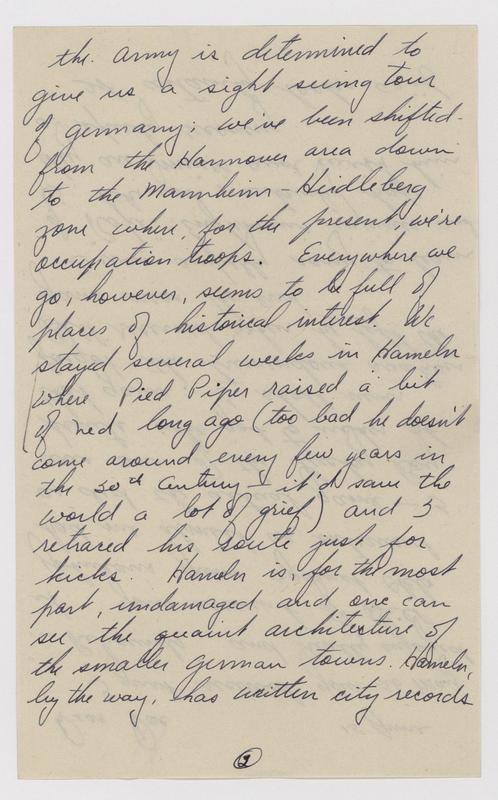 the. army is determined to
give us a sight seeing tour
of germany; we've been shifted
from the Hannover area down
to the Mannheim - Heidleberg
zone where, for the present, we're
occupation troops. Everywhere we
go, however, seems to be full of
places of historical interest. We
stayed several weeks in Hameln
where Pied Piper raised a bit
of ned long ago (too bad he doesn't
come around every few years in
the 20th Century - it'd save the
world a lot of grief) and I
retraced his route just for
kicks. Hameln is, for the most
part, undamaged and one can
see the quaint architecture of
the smaller german towns. Hameln,
by the way, has written city records
2